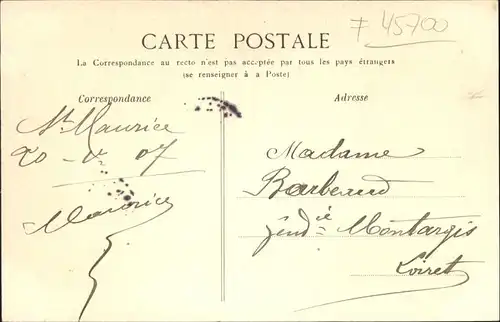 F 45700
CARTE POSTALE
La Correspondance au recto n'est pas acceptée par tous les pays étrangers
(se renseigner à a Poste)
Correspondance
Adresse
St Maurice
20-4-07
Maurice
Madame
Barbeaud
gendie Montargis
Loiret